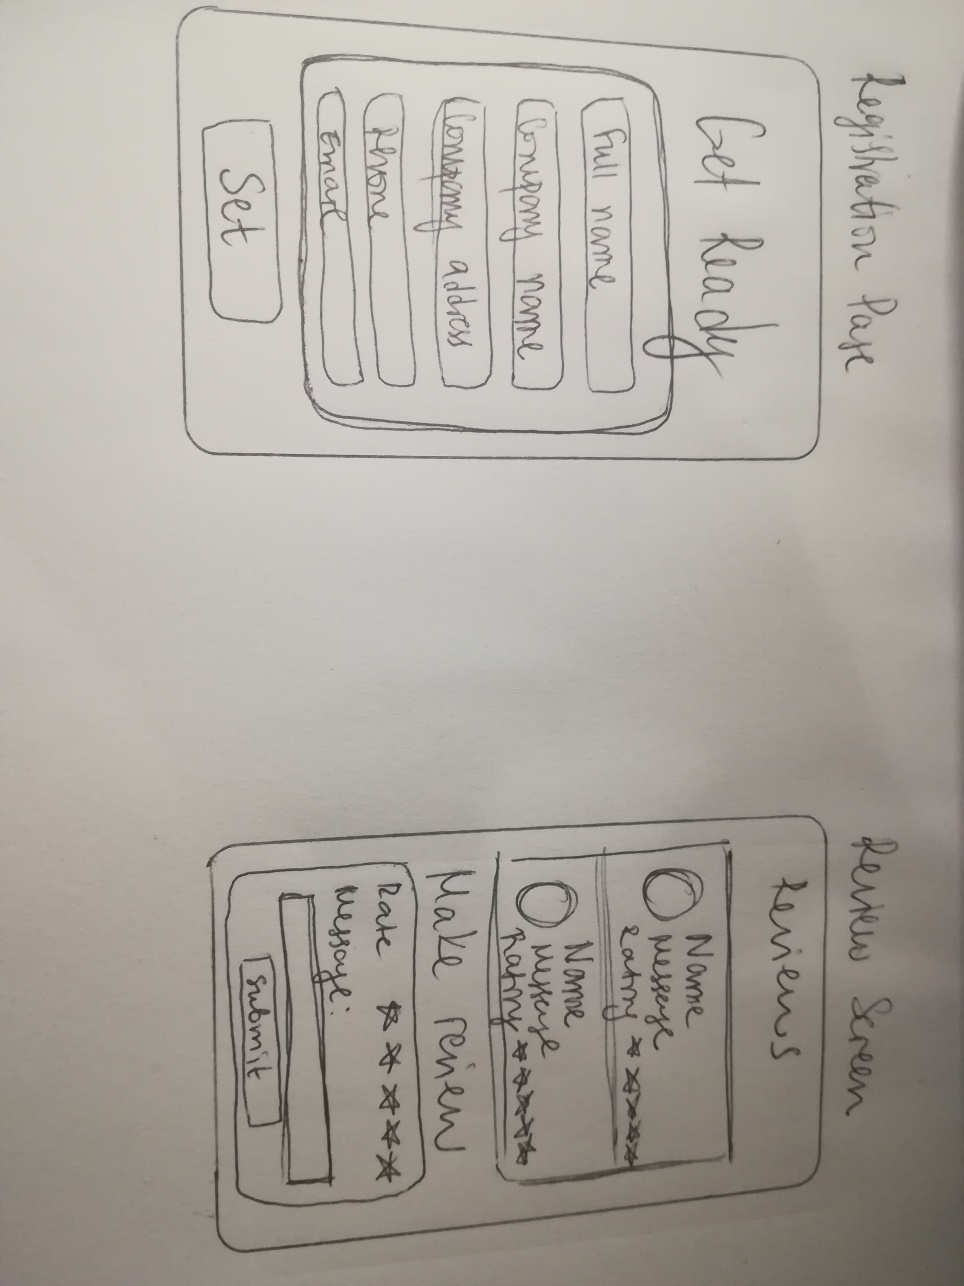 Registration Page
Get Ready
Full name
Company name
Company address
Phone
Email
Set
Review Screen
Reviews
Name
Message
Rating
Name
Message
Rating
Make review
Rate
Message:
Submit